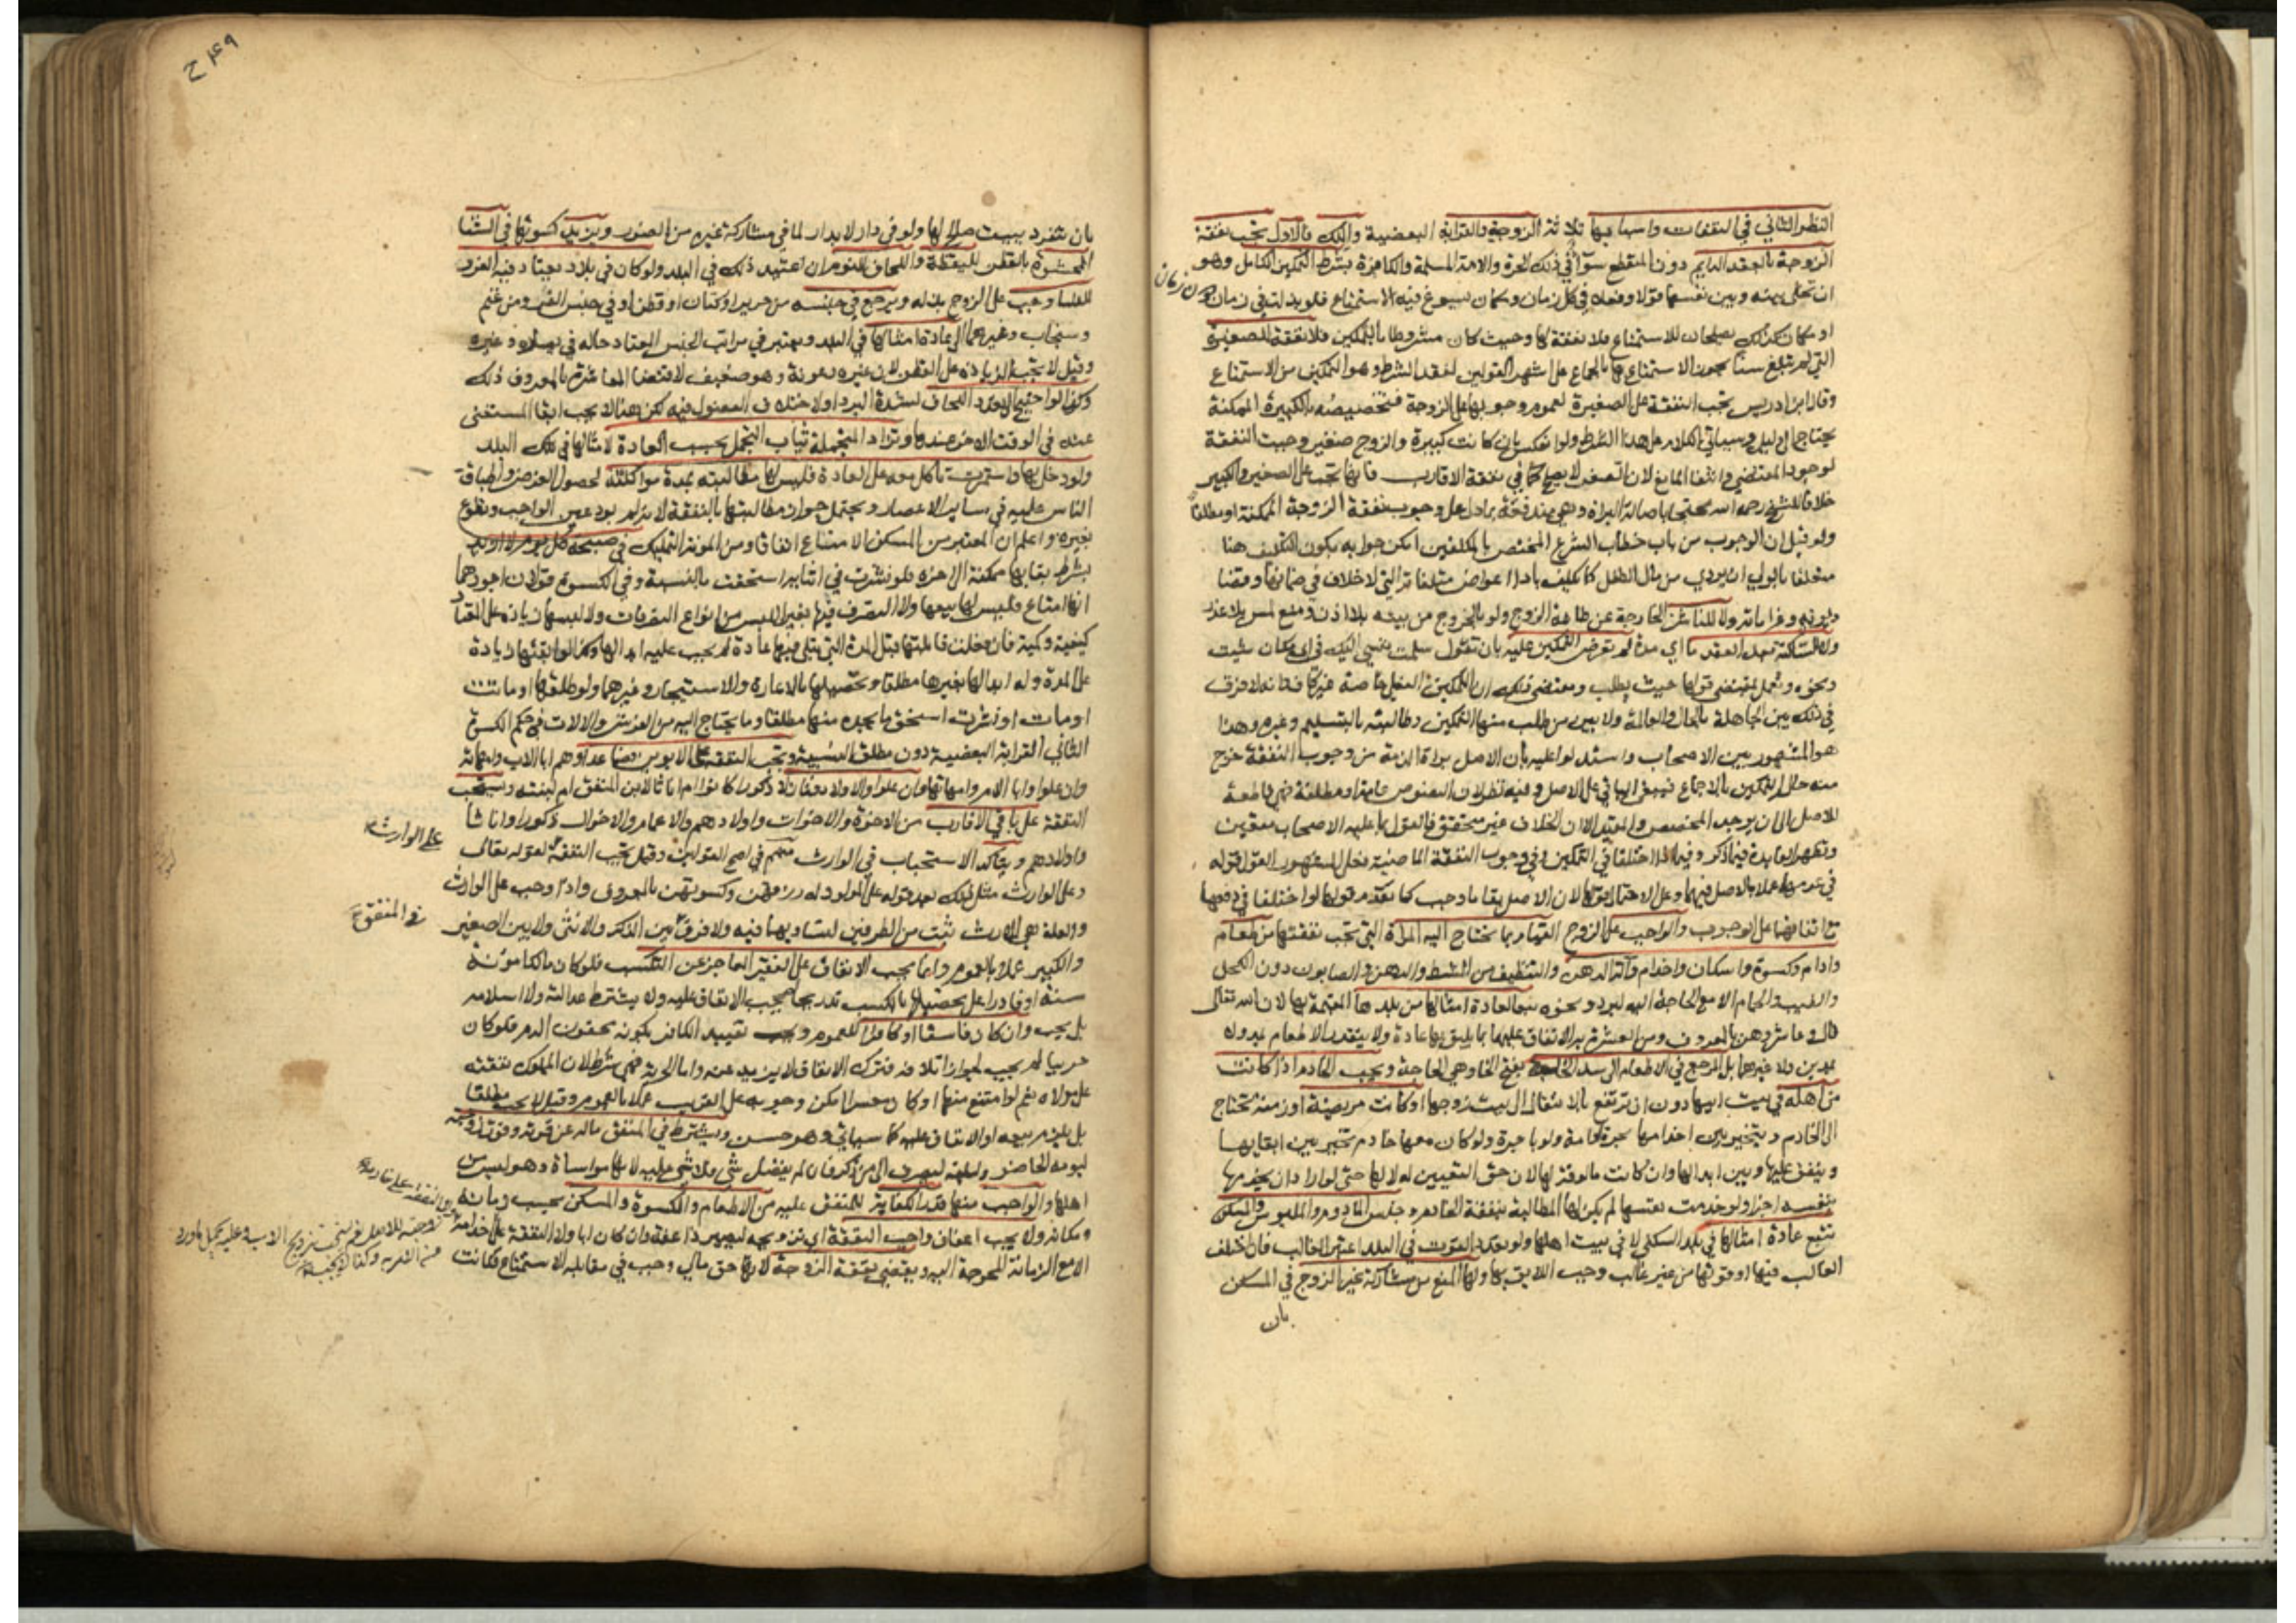 النظر الثاني في النفقات واسبابها ثلاثة الزوجية والقرابة البعضية والملك فالاول تجب نفقة
الزوجة بالعقد الدايم دون المنقطع سوآء في ذلك الحرة والامة المسلمة والكافرة بشرط التمكين الكامل وهو
ان تخلى بينه وبين نفسها قولا وفعلا في كل زمان ومكان يسوغ فيه الاستمتاع فلو بذلت في زمان
دون زمان
او مكان كذلك يصلحان للاستمتاع فلا نفقة لها وحيث كان مشروطا بالتمكين فلا نفقة للصغيرة
التي لم تبلغ سنا يجوز الاستمتاع بها بالجماع على اشهر القولين لفقد الشرط وهو التمكين من الاستمتاع
وقال ابن ادريس تجب النفقة على الصغيرة لعموم وجوبها على الزوجة فتخصيصه بالكبيرة الممكنة
يحتاج الى دليل وسياتي الكلام على هذا الشرط ولو انعكس بان كانت كبيرة والزوج صغير وجبت النفقة
لوجود المقتضي وانتفا المانع لان الصغر لا يصلح كما في نفقة الاقارب فانها تجب على الصغير والكبير
خلافا للشيخ رحمه الله محتجا باصالة البراة وهي مندفعة بما دل على وجوب نفقة الزوجة الممكنة او مطلقا
ولو قيل ان الوجوب من باب خطاب الشرع المختص بالمكلفين امكن جوابه بكون التكليف هنا
متعلقا بالولي ان يؤدي من مال الطفل كما يكلف بادا اعواض متلفاته التي لا خلاف في ضمانها وقضا
ديونه وغراماته ولا للناشز الخارجة عن طاعة الزوج ولو بالخروج من بيته بلا اذن ومنع لمس بلا عذر
ولا للساكتة بعد العقد ما اي مدة لم تعرض التمكين عليه بان تقول سلمت نفسي اليك في اي مكان شئت
ونحوه وتعمل بمقتضى قولها حيث يطلب ومقتضى ذلك ان التمكين الفعلي خاصة غير كاف وانه لا فرق
في ذلك بين الجاهلة بالحال والعالمة ولا بين من طلب منها التمكين وطالبته بالتسليم وغيره وهذا
هو المشهور بين الاصحاب واستدلوا عليه بان الاصل براة الذمة من وجوب النفقة خرج
منه حال التمكين بالاجماع فيبقى الباقي على الاصل وفيه نظر لان النصوص عامة او مطلقة فهي قاطعة
للاصل الى ان يوجد المخصص والمقيد الا ان الخلاف غير متحقق فالقول بما عليه الاصحاب متعين
وتظهر الفايدة فيما ذكر وفيما اذا اختلفا في التمكين وفي وجوب النفقة الماضية فعلى المشهور القول قوله
في عدمهما عملا بالاصل فيهما وعلى الاحتمال قولها لان الاصل بقا ما وجب كما يقدم قولها لو اختلفا في دفعها
مع اتفاقهما على الوجوب والواجب على الزوج القيام بما تحتاج اليه المراة التي تجب نفقتها من طعام
وادام وكسوة واسكان واخدام وآلة الدهن والتنظيف من المشط والدهن والصابون دون الكحل
والطيب والحمام الا مع الحاجة اليه لبرد ونحوه تبعا لعادة امثالها من بلدها المقيمة بها لان الله تعالى
قال وعاشروهن بالمعروف ومن العشرة به الانفاق عليها بما يليق بها عادة ولا يتقدر الاطعام بمد ولا
بمدين ولا غيرهما بل المرجع في الاطعام الى سد الخلة بفتح الخا وهي الحاجة ويجب الخادم اذا كانت
من اهله في بيت ابيها دون ان ترتفع بالانتقال الى بيت زوجها او كانت مريضة او زمنة تحتاج
الى الخادم ويتخير بين اخدامها بحرة وامة ولو باجرة ولو كان معها خادم تخير بين ابقايها
وينفق عليها وبين ابدالها وان كانت مالوفة لها لان حق التعيين له لا لها حتى لو اراد ان يخدمها
بنفسه اجزا ولو خدمت نفسها لم يكن لها المطالبة بنفقة الخادم وجنس المادوم والملبوس والمسكن
تتبع عادة امثالها في بلد السكنى لا في بيت اهلها ولو تعدد القوت في البلد اعتبر الغالب فان اختلف
الغالب فيها او قوتها من غير غالب وجب اللايق بها ولها المنع من مشاركة غير الزوج في المسكن
بان
٤٩ ح
بان تنفرد ببيت صالح لها ولو في دار لا بدار لما في مشاركة غيره من الضرر ويزيد كسوتها في الشتا
المحشوة بالقطن لليقظة واللحاف للنوم ان اعتيد ذلك في البلد ولو كان في بلاد يعتاد فيه الفرو
للنسا وجب على الزوج بذله ويرجع في جنسه من حرير او كتان او قطن او في جنس الفرو من غنم
وسنجاب وغيرهما الى عادة امثالها في البلد ويعتبر في مراتب الجنس المعتاد حاله في يساره وغيره
وقيل لا تجب الزيادة على القطن لان غيره رعونة وهو ضعيف لاقتضا المعاشرة بالمعروف ذلك
وكذا لو احتيج الى تعدد اللحاف لشدة البرد او لاختلاف الفصول فيه لكن هنا لا يجب ابقا المستغنى
عنه في الوقت الآخر عندها وتزاد المتجملة ثياب التجمل بحسب العادة لامثالها في تلك البلد
ولو دخل بها واستمرت تاكل معه على العادة فليس لها مطالبته بمدة مؤاكلته لحصول الغرض واطباق
الناس عليه في ساير الاعصار ويحتمل جواز مطالبتها بالنفقة لانه لم يؤد عين الواجب وتطوع
بغيره واعلم ان المعتبر من المسكن الامتناع اتفاقا ومن المونة التمليك في صبيحة كل يوم لا ازيد
بشرط بقايها ممكنة الى اخره فلو نشزت في اثنايه استحقت بالنسبة وفي الكسوة قولان اجودهما
انها امتاع فليس لها بيعها ولا التصرف فيها بغير اللبس من انواع التصرفات ولا لبسها زيادة على المعتاد
كيفية وكمية فان فعلت فابلتها قبل المدة التي تبلى فيها عادة لم يجب عليه ابدالها وكذا لو ابقتها زيادة
على المدة وله ابدالها بغيرها مطلقا وتحصيلها بالاعارة والاستيجار وغيرهما ولو طلقها او ماتت
او مات او نشزت استحق ما يجده منها مطلقا وما يحتاج اليه من الفرش والالات في حكم الكسوة
الثاني القرابة البعضية دون مطلق النسبية وتجب النفقة على الابوين فصاعدا وهم ابا الاب وامهاته
وان علوا وابا الام وامهاتها وان علوا والاولاد فنازلا ذكورا كانوا ام اناثا لابن المنفق ام لبنته ويستحب
النفقة على باقي الاقارب من الاخوة والاخوات واولادهم والاعمام والاخوال ذكورا واناثا
واولادهم ويتاكد الاستحباب في الوارث منهم في اصح القولين وقيل تجب النفقة لقوله تعالى
على الوارث
وعلى الوارث مثل ذلك بعد قوله على المولود له رزقهن وكسوتهن بالمعروف واذا وجب على الوارث
والعلة هي الارث ثبت من الطرفين لتساويهما فيه ولا فرق بين الذكر والانثى ولا بين الصغير
في المنفق
والكبير عملا بالعموم وانما يجب الانفاق على الفقير العاجز عن التكسب فلو كان مالكا مونة
سنة او قادرا على تحصيلها بالكسب تدريجا لم يجب الانفاق عليه ولا يشترط عدالته ولا اسلامه
بل يجب وان كان فاسقا او كافرا للعموم ويجب تقييد الكافر بكونه محقون الدم فلو كان
حربيا لم يجب لجواز اتلافه فترك الانفاق لا يزيد عنه واما الحرية فهي شرط لان المملوك نفقته
على مولاه نعم لو امتنع منها او كان معسرا امكن وجوبه على القريب عملا بالعموم وقيل لا يجب مطلقا
بل يلزم ببيعه او الانفاق عليه كما سياتي وهو حسن ويشترط في المنفق ماله عن قوته وقوت زوجته
ليومه الحاضر وليلته ليصرف الى من ذكر فان لم يفضل شي فلا شي عليه لانها مواساة وهو ليس من
اهلها والواجب منها قدر الكفاية للمنفق عليه من الاطعام والكسوة والمسكن بحسب زمانه
ومكانه ولا يجب اعفاف واجب النفقة اي تزويجه ليصير ذا عفة وان كان ابا ولا النفقة على خادمه
الا مع الزمانة المحوجة اليه ويقضي نفقة الزوجة لانها حق مالي وجب في مقابلة الاستمتاع فكانت